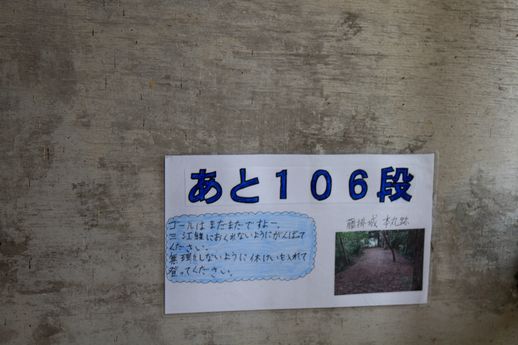 あと106段
ゴールはまだまだですよー。
三江線におくれないようにがんばって
ください。
無理をしないように休けいも入れて
登ってください。
藤掛城 本丸跡